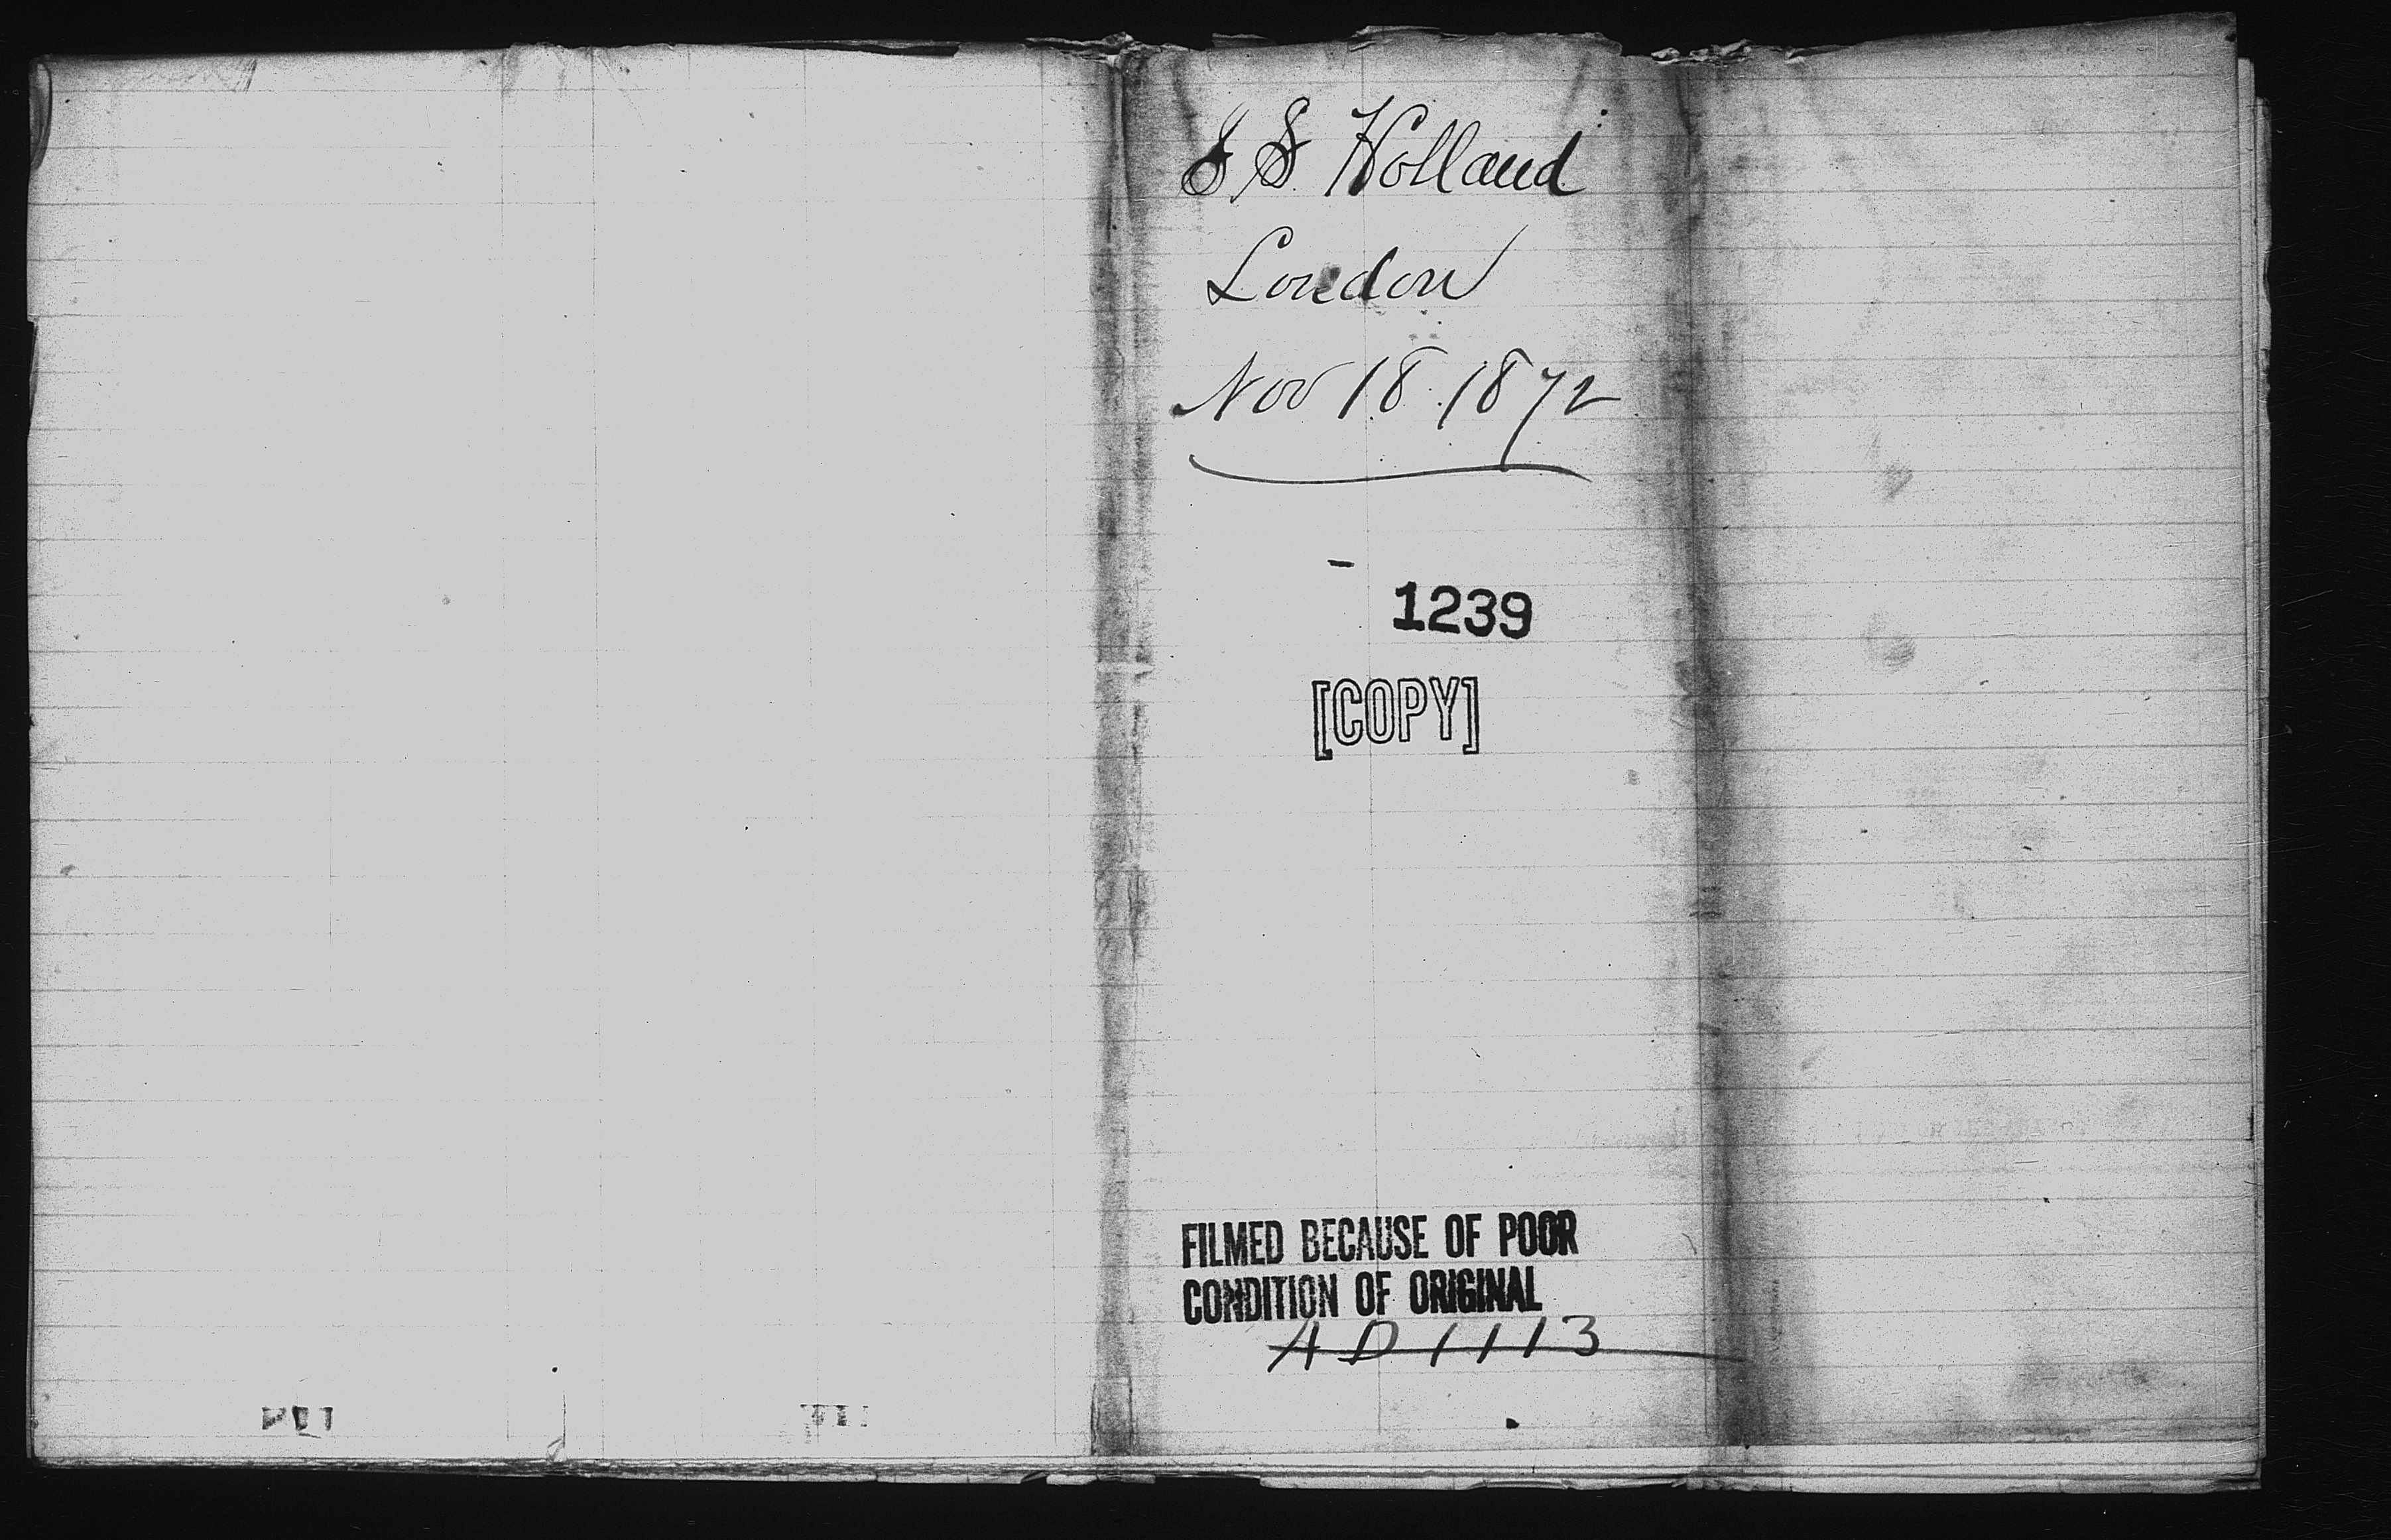 J S. Holland
London
Nov 18. 1872
1239
[COPY]
FILMED BECAUSE OF POOR
CONDITION OF ORIGINAL
AD 1113